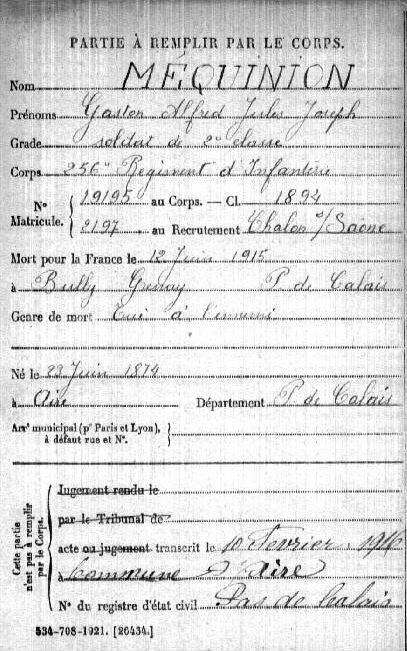 PARTIE À REMPLIR PAR LE CORPS.
Nom MÉQUINION
Prénoms Gaston Alfred Jules Joseph
Grade soldat de 2e classe
Corps 256e Régiment d'Infanterie
N° Matricule. { 19195 au Corps. — Cl. 1894
2197 au Recrutement Chalon s/Saone
Mort pour la France le 12 Juin 1915
à Bully Grenay P. de Calais
Genre de mort Tué à l'ennemi
Né le 23 Juin 1874
à Aire Département P. de Calais
Arrt municipal (pr Paris et Lyon), à défaut rue et N°.
Cette partie n'est pas à remplir par le Corps.
Jugement rendu le
par le Tribunal de
acte ou jugement transcrit le 10 Février 1916
à Commune d'Aire
N° du registre d'état civil Pas de Calais
534-708-1921. [26434.]